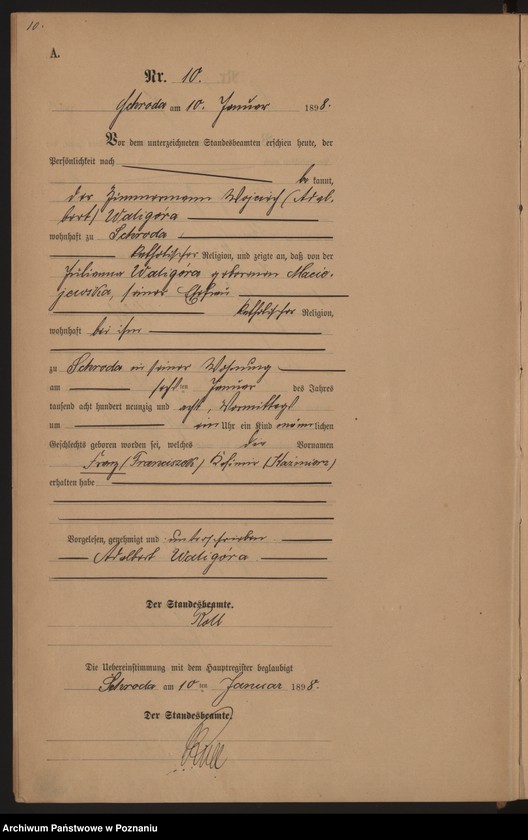 10.
A.
Nr. 10.
Schroda am 10. Januar 1898.
Vor dem unterzeichneten Standesbeamten erschien heute, der
Persönlichkeit nach
be kannt,
der Zimmermann Wojciech (Adal-
bert) Waligóra
wohnhaft zu Schroda
katholischer Religion, und zeigte an, daß von der
Julianna Waligóra geborenen Macie-
jewska, seiner Ehefrau
katholischer Religion,
wohnhaft bei ihm
zu Schroda in seiner Wohnung
am ten Januar des Jahres
tausend acht hundert neunzig und acht, Vormittags
um ein Uhr ein Kind männlichen
Geschlechts geboren worden sei, welches die Vornamen
Franz (Franciszek) Kasimir (Kazimierz)
erhalten habe
Vorgelesen, genehmigt und unterschrieben
Adalbert Waligóra
Der Standesbeamte.
Roll
Die Uebereinstimmung mit dem Hauptregister beglaubigt
Schroda am 10 ten Januar 1898.
Der Standesbeamte.
Roll
Archiwum Państwowe w Poznaniu